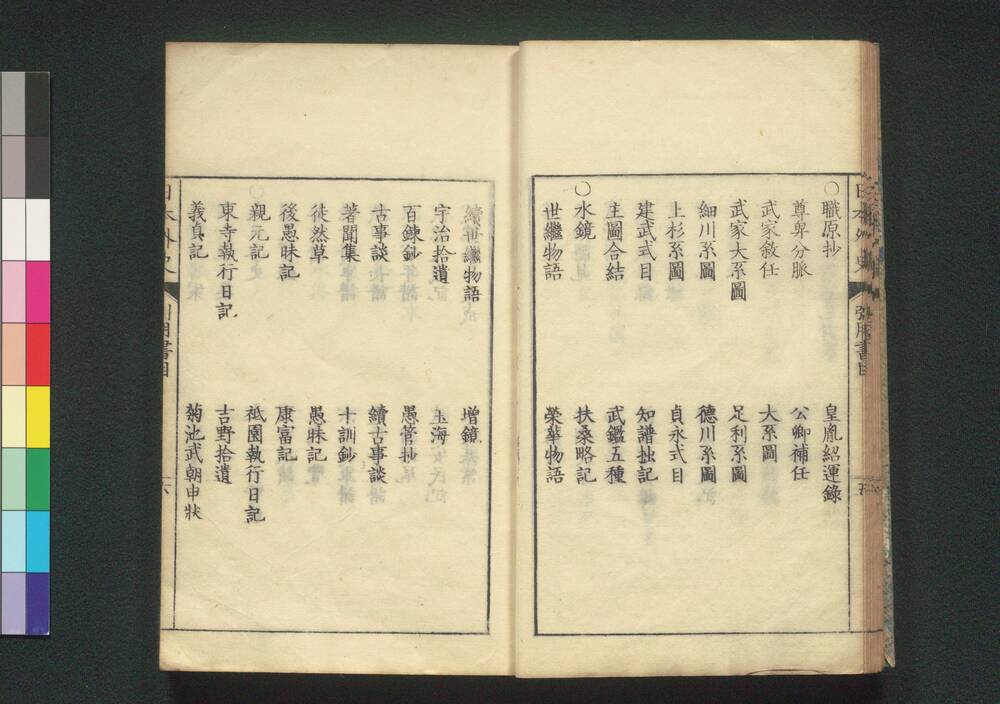 〇職原抄　皇胤紹運錄
尊卑分脈　公卿補任
武家敘任　大系圖
武家大系圖　足利系圖
細川系圖　德川系圖
上杉系圖　貞永式目
建武式目　知譜拙記
主圖合結　武鑑五種
〇水鏡　扶桑略記
世繼物語　榮華物語
續世繼物語　增鏡
宇治拾遺　玉海
百鍊鈔　愚管抄
古事談　續古事談
著聞集　十訓鈔
徒然草　愚昧記
後愚昧記　康富記
親元記　祗園執行日記
東寺執行日記　吉野拾遺
義貞記　菊池武朝申狀